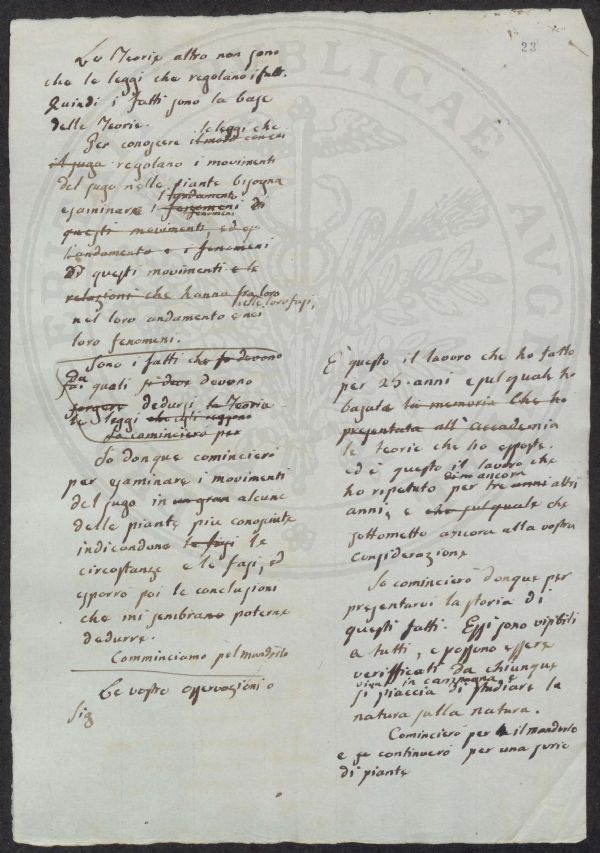 23
Le Teorie altro non sono
che le leggi che regolano i fatti.
Quindi i Fatti sono la base
delle Teorie.
le leggi che
Per conoscere il modo con cui
il sugo regolano i movimenti
del sugo nelle piante bisogna
l'andamenti
esaminare i fenomeni di
fenomeni
questi movimenti, ed
l'andamento e i fenomeni
di questi movimenti e le
relazioni che hanno fra loro
nelle loro fasi,
nel loro andamento e nei
loro fenomeni.
Sono i fatti che si devono
Da
quali si deve devono
dedursi la Teoria
le leggi che
Io comincierò per
Io donque comincierò
per esaminare i movimenti
del sugo in un gran alcune
delle piante piu conosciute
indicandone le fasi le
circostanze e le fasi, ed
esporrò poi le conclusioni
che mi sembrano poterne
dedurre.
Comminciamo pel mandorlo
Le vostre osservazioni o
Sig
È questo il lavoro che ho fatto
per 25 anni e sul quale ho
basata la memoria che ho
presentata all'Accademia
le teorie che ho esposte.
ed è questo il lavoro che
dino ancora
ho ripetuto per tre anni altri
anni, e che sul quale che
sottometto ancora alla vostra
considerazione
Io comincierò donque per
presentarvi la storia di
questi fatti. Essi sono visibili
a tutti, e possono essere
verifficati da chiunque
viva in campagna e
si piaccia di studiare la
natura sulla natura.
Comincierò per il mandorlo
e se continuerò per una serie
di piante